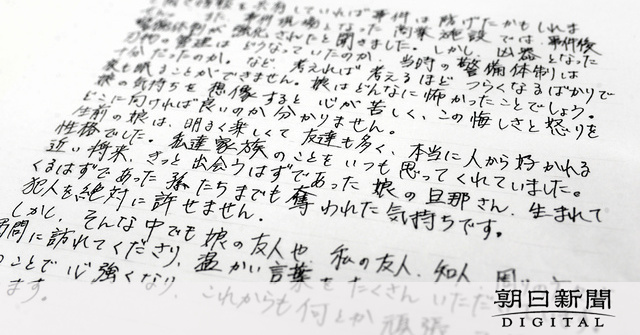 情報を共有していれば事件は防げたかもしれま
また、事件現場となった商業施設では、事件後
警備体制が強化されたと聞きました。しかし、凶器となった
刃物の管理はどうなっていたのか、当時の警備体制は
十分だったのか。など、考えれば考えるほどつらくなるばかりで
夜も眠ることができません。娘はどんなに怖かったことでしょう。
娘の気持ちを想像すると心が苦しく、この悔しさと怒りを
どこに向ければ良いのか分かりません。
生前の娘は、明るく楽しくて友達も多く、本当に人から好かれる
性格でした。私達家族のことをいつも思ってくれていました。
近い将来、きっと出会うはずであった娘の旦那さん、生まれて
くるはずであった孫たちまでも奪われた気持ちです。
犯人を絶対に許せません。
しかし、そんな中でも娘の友人や、私の友人、知人、周りの
問に訪れてくださり、温かい言葉をたくさんいただ
ことで心強くなり、これからも何とか頑張
ます。
朝日新聞
DIGITAL